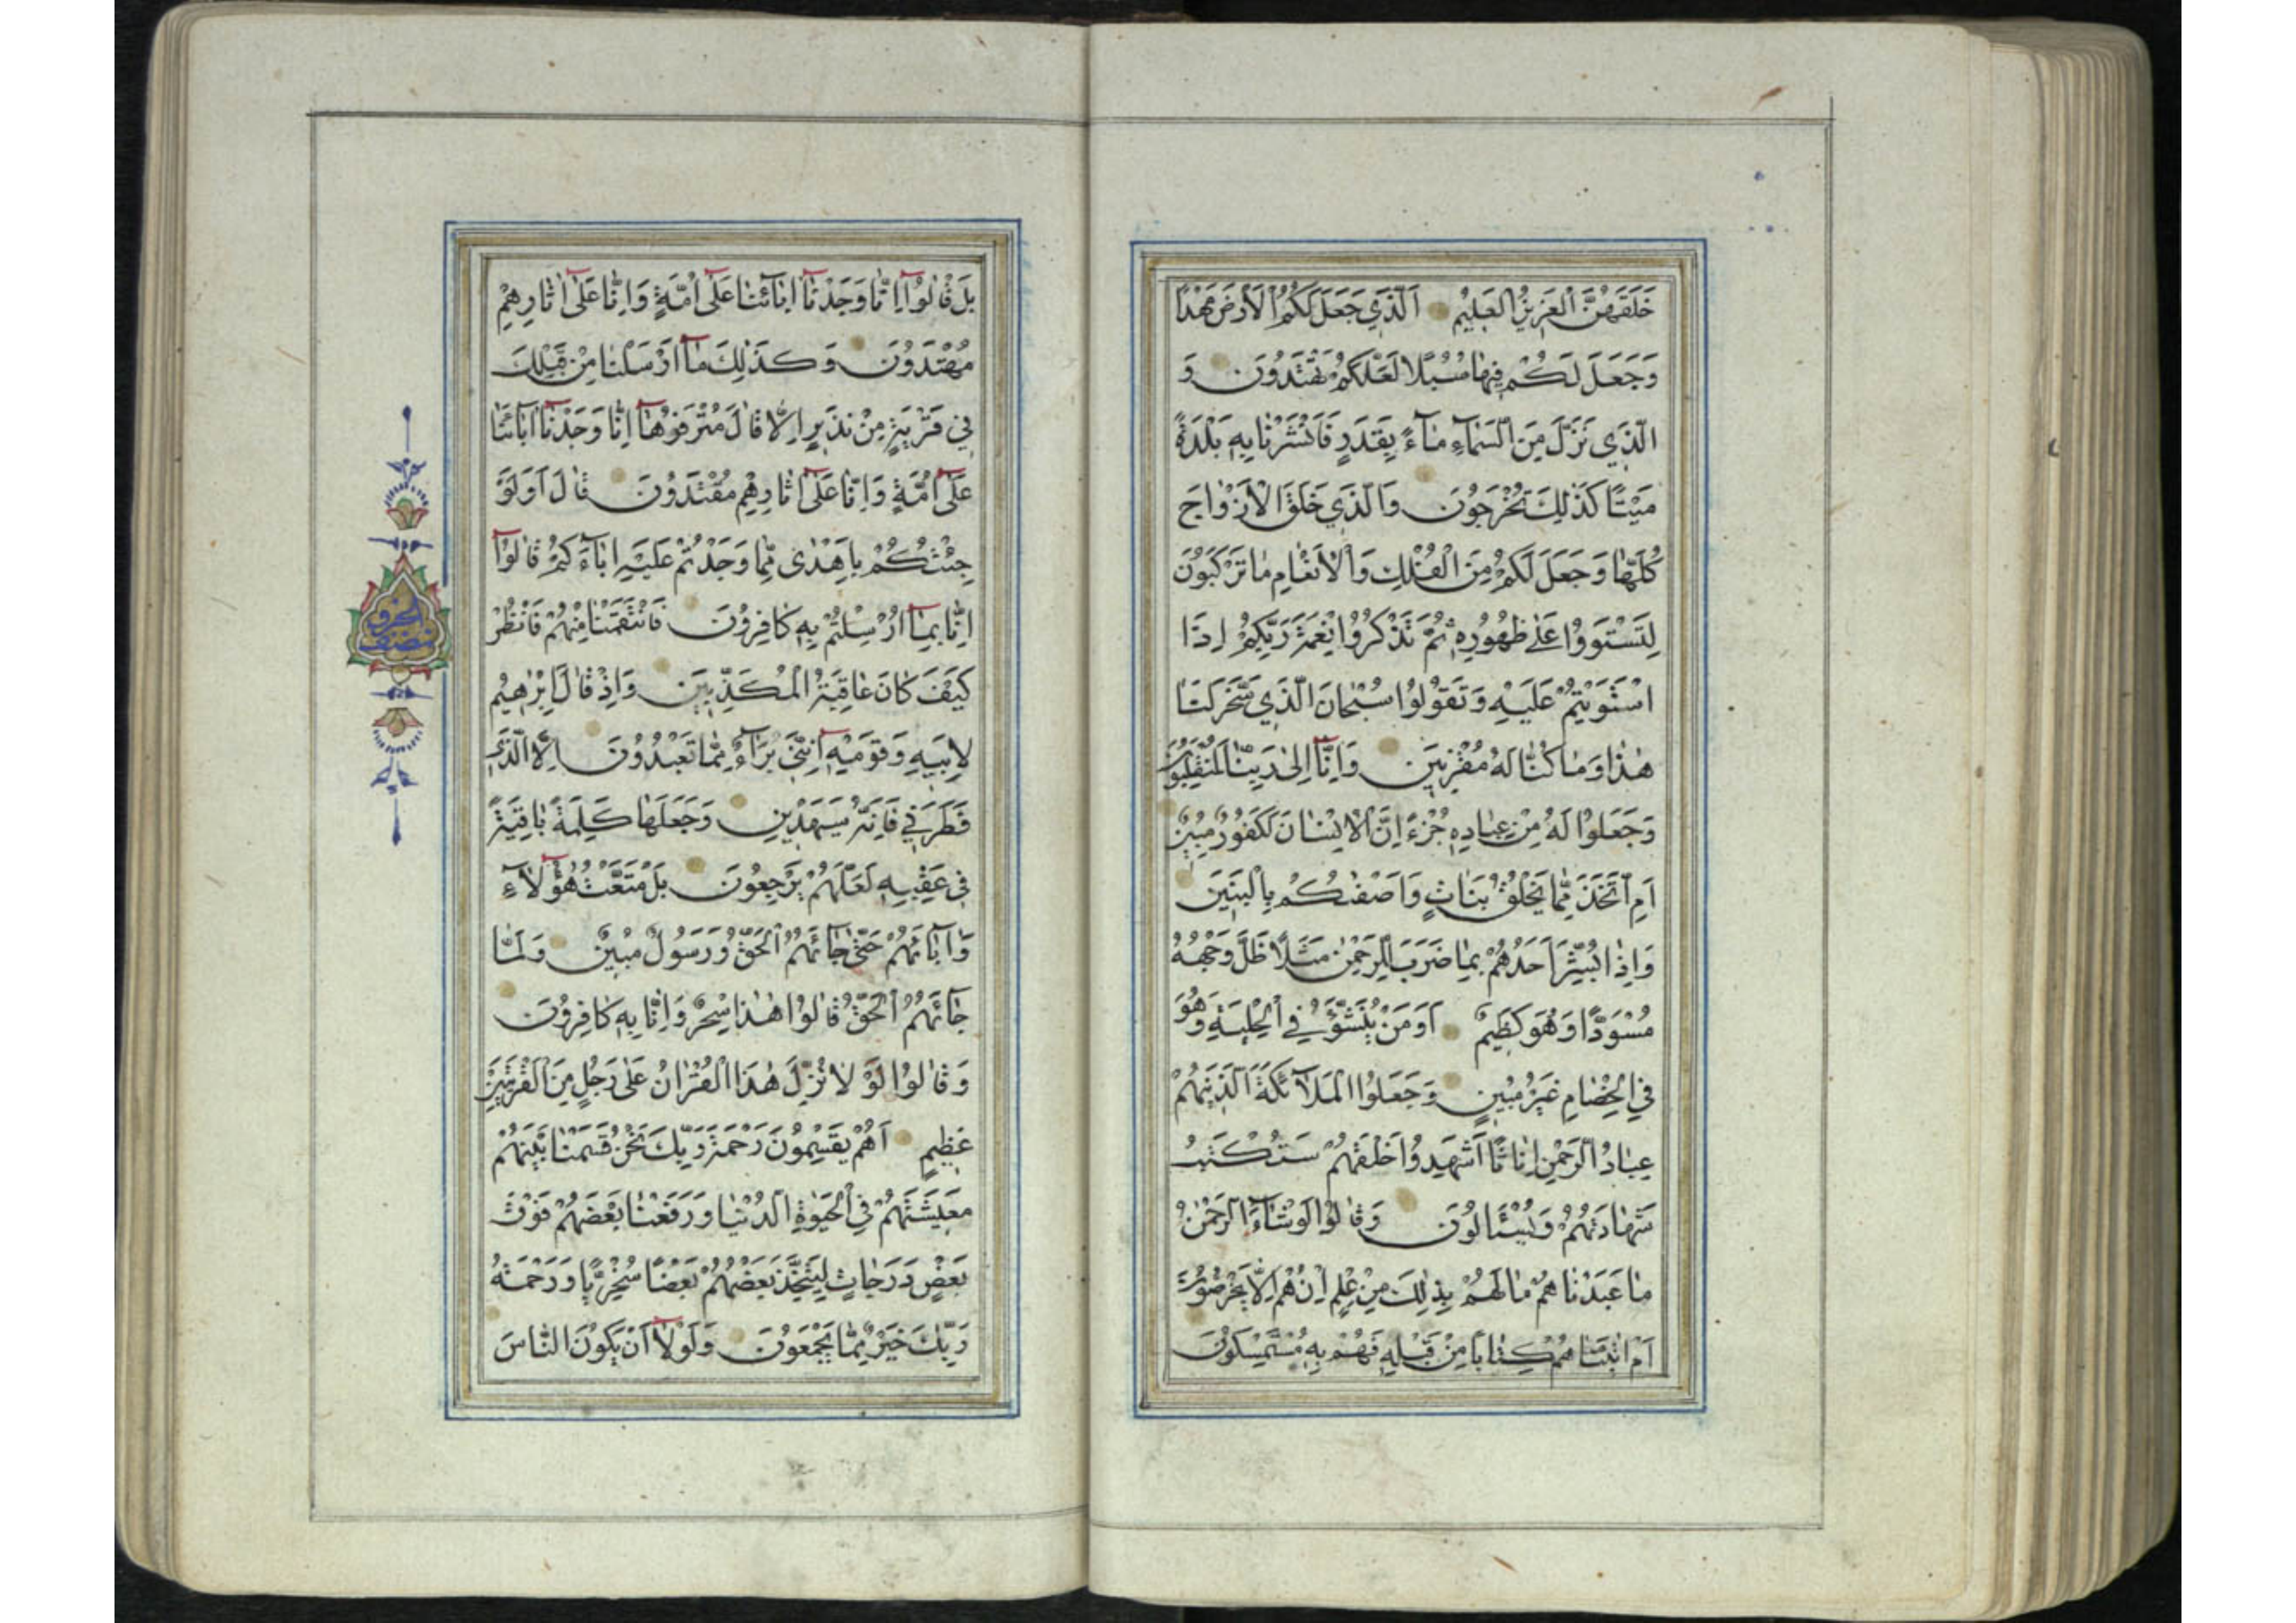 خَلَقَهُنَّ الْعَزِيزُ الْعَلِيمُ اَلَّذِي جَعَلَ لَكُمُ الْاَرْضَ مَهْدًا
وَجَعَلَ لَكُمْ فِيهَا سُبُلًا لَعَلَّكُمْ تَهْتَدُونَ وَ
الَّذِي نَزَّلَ مِنَ السَّمَآءِ مَآءً بِقَدَرٍ فَاَنْشَرْنَا بِهِ بَلْدَةً
مَيْتًا كَذٰلِكَ تُخْرَجُونَ وَالَّذِي خَلَقَ الْاَزْوَاجَ
كُلَّهَا وَجَعَلَ لَكُمْ مِنَ الْفُلْكِ وَالْاَنْعَامِ مَا تَرْكَبُونَ
لِتَسْتَوُوا عَلٰى ظُهُورِهِ ثُمَّ تَذْكُرُوا نِعْمَةَ رَبِّكُمْ اِذَا
اسْتَوَيْتُمْ عَلَيْهِ وَتَقُولُوا سُبْحَانَ الَّذِي سَخَّرَ لَنَا
هٰذَا وَمَا كُنَّا لَهُ مُقْرِنِينَ وَاِنَّآ اِلٰى رَبِّنَا لَمُنْقَلِبُونَ
وَجَعَلُوا لَهُ مِنْ عِبَادِهِ جُزْءً اِنَّ الْاِنْسَانَ لَكَفُورٌ مُبِينٌ
اَمِ اتَّخَذَ مِمَّا يَخْلُقُ بَنَاتٍ وَاَصْفٰىكُمْ بِالْبَنِينَ
وَاِذَا بُشِّرَ اَحَدُهُمْ بِمَا ضَرَبَ لِلرَّحْمٰنِ مَثَلًا ظَلَّ وَجْهُهُ
مُسْوَدًّا وَهُوَ كَظِيمٌ اَوَمَنْ يُنَشَّؤُ فِي الْحِلْيَةِ وَهُوَ
فِي الْخِصَامِ غَيْرُ مُبِينٍ وَجَعَلُوا الْمَلَآئِكَةَ الَّذِينَ هُمْ
عِبَادُ الرَّحْمٰنِ اِنَاثًا اَشَهِدُوا خَلْقَهُمْ سَتُكْتَبُ
شَهَادَتُهُمْ وَيُسْئَلُونَ وَقَالُوا لَوْ شَآءَ الرَّحْمٰنُ
مَا عَبَدْنَاهُمْ مَا لَهُمْ بِذٰلِكَ مِنْ عِلْمٍ اِنْ هُمْ اِلَّا يَخْرُصُونَ
اَمْ اٰتَيْنَاهُمْ كِتَابًا مِنْ قَبْلِهِ فَهُمْ بِهِ مُسْتَمْسِكُونَ
بَلْ قَالُوٓا اِنَّا وَجَدْنَآ اٰبَائَنَا عَلٰٓى اُمَّةٍ وَاِنَّا عَلٰٓى اٰثَارِهِمْ
مُهْتَدُونَ وَكَذٰلِكَ مَآ اَرْسَلْنَا مِنْ قَبْلِكَ
فِي قَرْيَةٍ مِنْ نَذِيرٍ اِلَّا قَالَ مُتْرَفُوهَآ اِنَّا وَجَدْنَآ اٰبَائَنَا
عَلٰٓى اُمَّةٍ وَاِنَّا عَلٰٓى اٰثَارِهِمْ مُقْتَدُونَ قَالَ اَوَلَوْ
جِئْتُكُمْ بِاَهْدٰى مِمَّا وَجَدْتُمْ عَلَيْهِ اٰبَآءَكُمْ قَالُوٓا
اِنَّا بِمَآ اُرْسِلْتُمْ بِهِ كَافِرُونَ فَانْتَقَمْنَا مِنْهُمْ فَانْظُرْ
كَيْفَ كَانَ عَاقِبَةُ الْمُكَذِّبِينَ وَاِذْ قَالَ اِبْرٰهِيمُ
لِاَبِيهِ وَقَوْمِهِٓ اِنَّنِي بَرَآءٌ مِمَّا تَعْبُدُونَ اِلَّا الَّذِي
فَطَرَنِي فَاِنَّهُ سَيَهْدِينِ وَجَعَلَهَا كَلِمَةً بَاقِيَةً
فِي عَقِبِهِ لَعَلَّهُمْ يَرْجِعُونَ بَلْ مَتَّعْتُ هٰٓؤُلَآءِ
وَاٰبَآئَهُمْ حَتّٰى جَآئَهُمُ الْحَقُّ وَرَسُولٌ مُبِينٌ وَلَمَّا
جَآئَهُمُ الْحَقُّ قَالُوا هٰذَا سِحْرٌ وَاِنَّا بِهِ كَافِرُونَ
وَقَالُوا لَوْلَا نُزِّلَ هٰذَا الْقُرْاٰنُ عَلٰى رَجُلٍ مِنَ الْقَرْيَتَيْنِ
عَظِيمٍ اَهُمْ يَقْسِمُونَ رَحْمَةَ رَبِّكَ نَحْنُ قَسَمْنَا بَيْنَهُمْ
مَعِيشَتَهُمْ فِي الْحَيٰوةِ الدُّنْيَا وَرَفَعْنَا بَعْضَهُمْ فَوْقَ
بَعْضٍ دَرَجَاتٍ لِيَتَّخِذَ بَعْضُهُمْ بَعْضًا سُخْرِيًّا وَرَحْمَةُ
رَبِّكَ خَيْرٌ مِمَّا يَجْمَعُونَ وَلَوْلَآ اَنْ يَكُونَ النَّاسُ
نصف الحزب